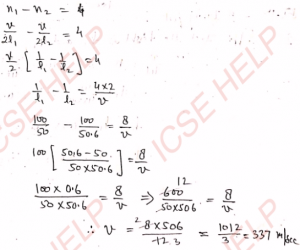 n₁ - n₂ = 4
v/2l₁ - v/2l₂ = 4
v/2 [1/l₁ - 1/l₂] = 4
1/l₁ - 1/l₂ = 4×2/v
100/50 - 100/50.6 = 8/v
100 [50.6 - 50 / 50×50.6] = 8/v
100 × 0.6 / 50×50.6 = 8/v ⇒ 12 600/50×506 = 8/v
∴ v = 2 8×506/12 3 = 1012/3 = 337 m/sec
ICSE HELP
ICSE HELP
ICSE HELP